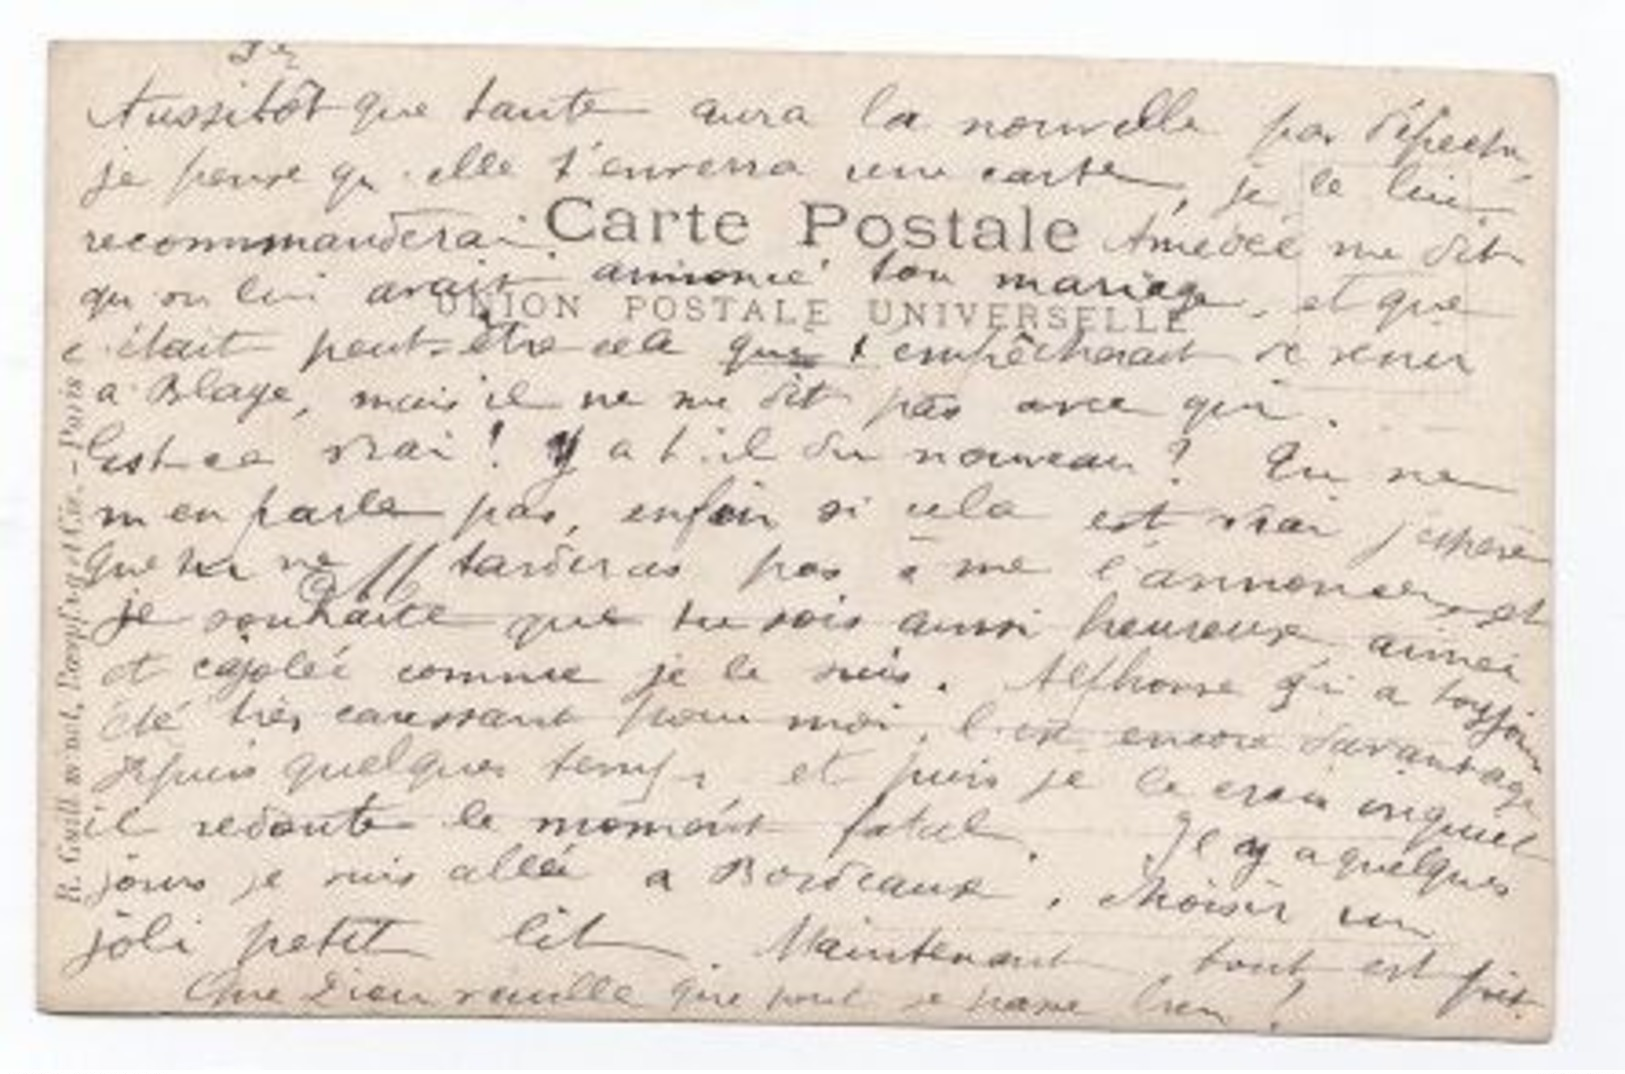 Aussitôt que tante aura la nouvelle par dépêche,
je pense qu'elle t'enverra une carte, je le lui
recommanderai. Amédée me dit
Carte Postale
qu'on lui avait annoncé ton mariage, et que
UNION POSTALE UNIVERSELLE
c'était peut-être cela qui t'empêcherait de venir
a Blaye, mais il ne me dit pas avec qui.
Est-ce vrai! Y a t-il du nouveau? Tu ne
m'en parle pas, enfin si cela est vrai j'espère
que tu ne tarderas pas à me l'annoncer, et
je souhaite que tu sois aussi heureuse aimée
et cajolée comme je le suis. Alphonse qui a toujours
été très caressant pour moi, l'est encore davantage
depuis quelques temps, et puis je le crois inquiet
il redoute le moment fatal. Il y a quelques
jours je suis allée a Bordeaux, choisir un
joli petit lit. Maintenant tout est prêt.
Que Dieu veuille que tout se passe bien!
R. Guilleminot, Bœspflug et Cie. - Paris